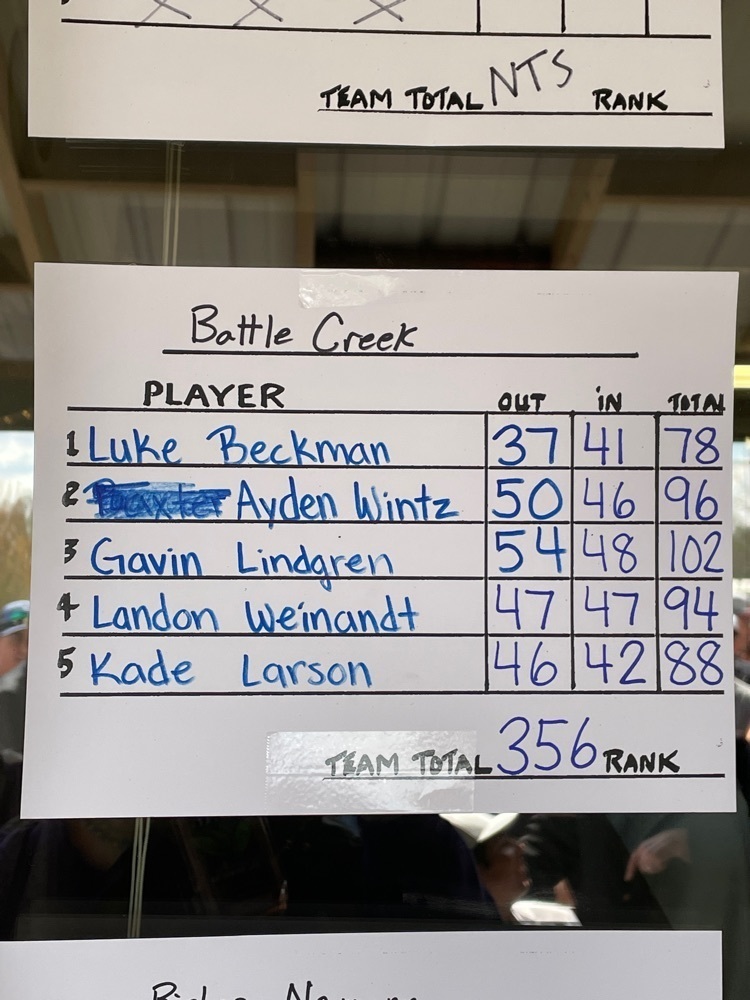 TEAM TOTAL NTS RANK
Battle Creek
PLAYER OUT IN TOTAL
1 Luke Beckman 37 41 78
2 Baxter Ayden Wintz 50 46 96
3 Gavin Lindgren 54 48 102
4 Landon Weinandt 47 47 94
5 Kade Larson 46 42 88
TEAM TOTAL 356 RANK